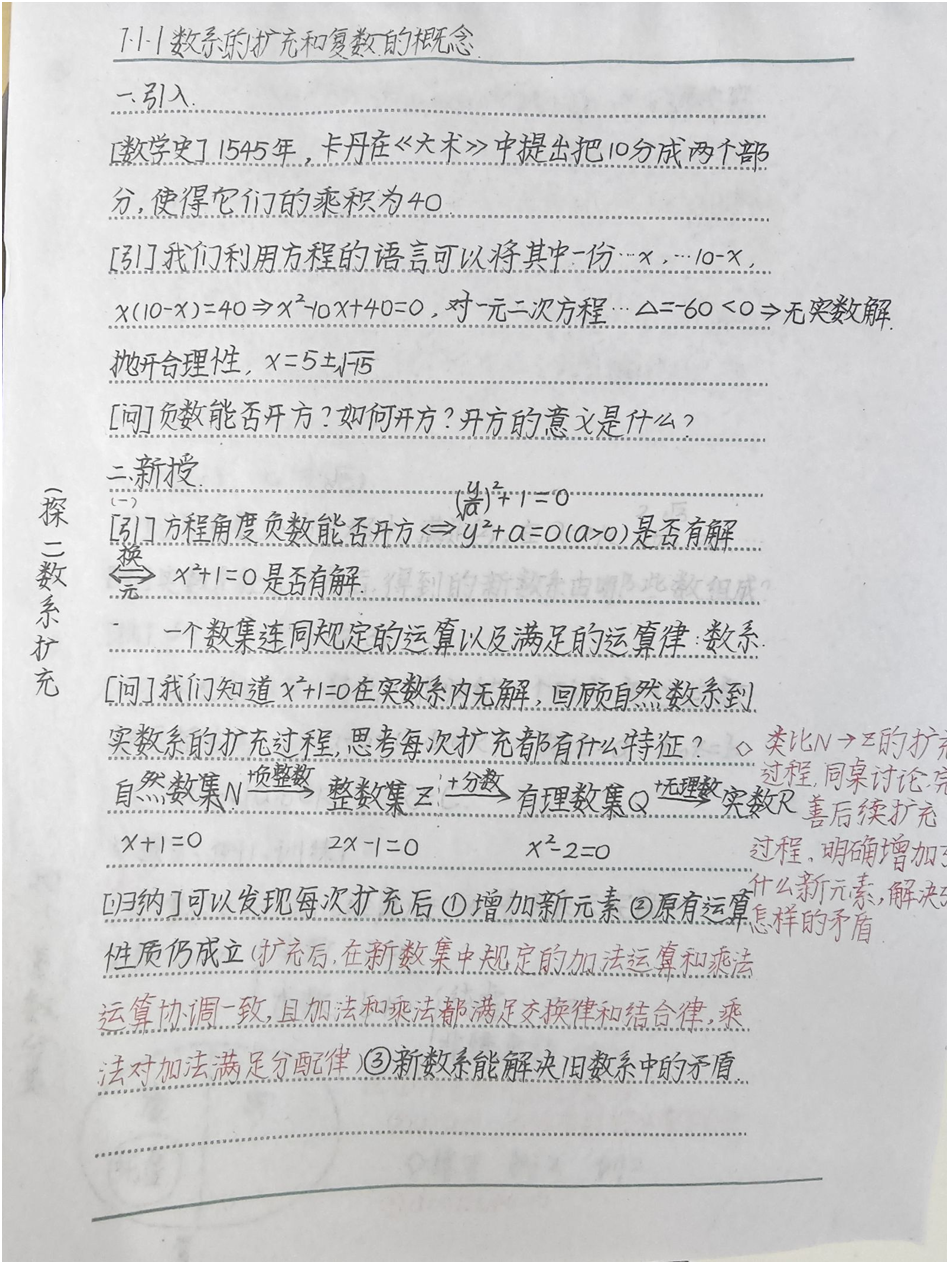 7.1.1数系的扩充和复数的概念
一.引入.
[数学史]1545年，卡丹在《大术》中提出把10分成两个部
分，使得它们的乘积为40
[引]我们利用方程的语言可以将其中一份…x，…10-x，
x(10-x)=40⇒x²-10x+40=0，对一元二次方程…△=-60<0⇒无实数解.
抛开合理性，x=5±√-15
[问]负数能否开方？如何开方？开方的意义是什么？
二.新授.
(y/√a)²+1=0
(一)
[引]方程角度负数能否开方⇔y²+a=0(a>0)是否有解
换元
⇔ x²+1=0是否有解.
一个数集连同规定的运算以及满足的运算律：数系.
(探二数系扩充
[问]我们知道x²+1=0在实数系内无解，回顾自然数系到
实数系的扩充过程，思考每次扩充都有什么特征？
自然数集N +负整数→ 整数集Z +分数→ 有理数集Q +无理数→ 实数R
x+1=0 2x-1=0 x²-2=0
◇类比N→Z的扩充
过程，同桌讨论.完
善后续扩充
过程，明确增加了
什么新元素，解决了
怎样的矛盾
[归纳]可以发现每次扩充后①增加新元素②原有运算
性质仍成立(扩充后，在新数集中规定的加法运算和乘法
运算协调一致，且加法和乘法都满足交换律和结合律，乘
法对加法满足分配律)③新数系能解决旧数系中的矛盾.